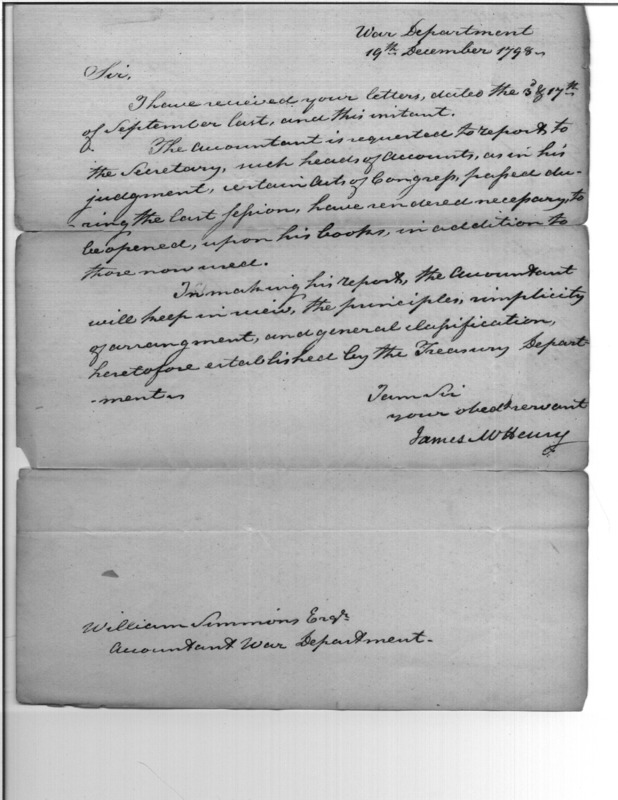 War Department
19th December 1798.
Sir,
I have recieved your letters, dated the 3d & 17th
of September last, and this instant.
The accountant is requested to report, to
the Secretary, such heads of accounts, as in his
judgment, certain Acts of Congress, passed du-
-ring the last session, have rendered necessary, to
be opened, upon his books, in addition to
those now used.
In making his report, the accountant
will keep in view, the principles, simplicity
of arrangment, and general classification,
heretofore established by the Treasury Depart-
-ment.
I am Sir
your obedt servant
James McHenry
William Simmons Esqr.
Accountant War Department.